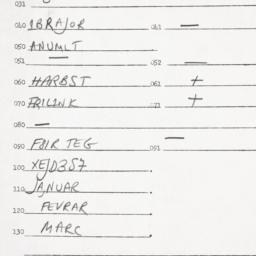 031
040 IBRAJOR 041 —
050 ANUMLT
051 — 052 —
060 HARBST 061 +
070 FRILINK 071 +
080 —
090 FOIR TEG 091 —
100 XEJD357
110 JANUAR
120 FEVRAR
130 MARC